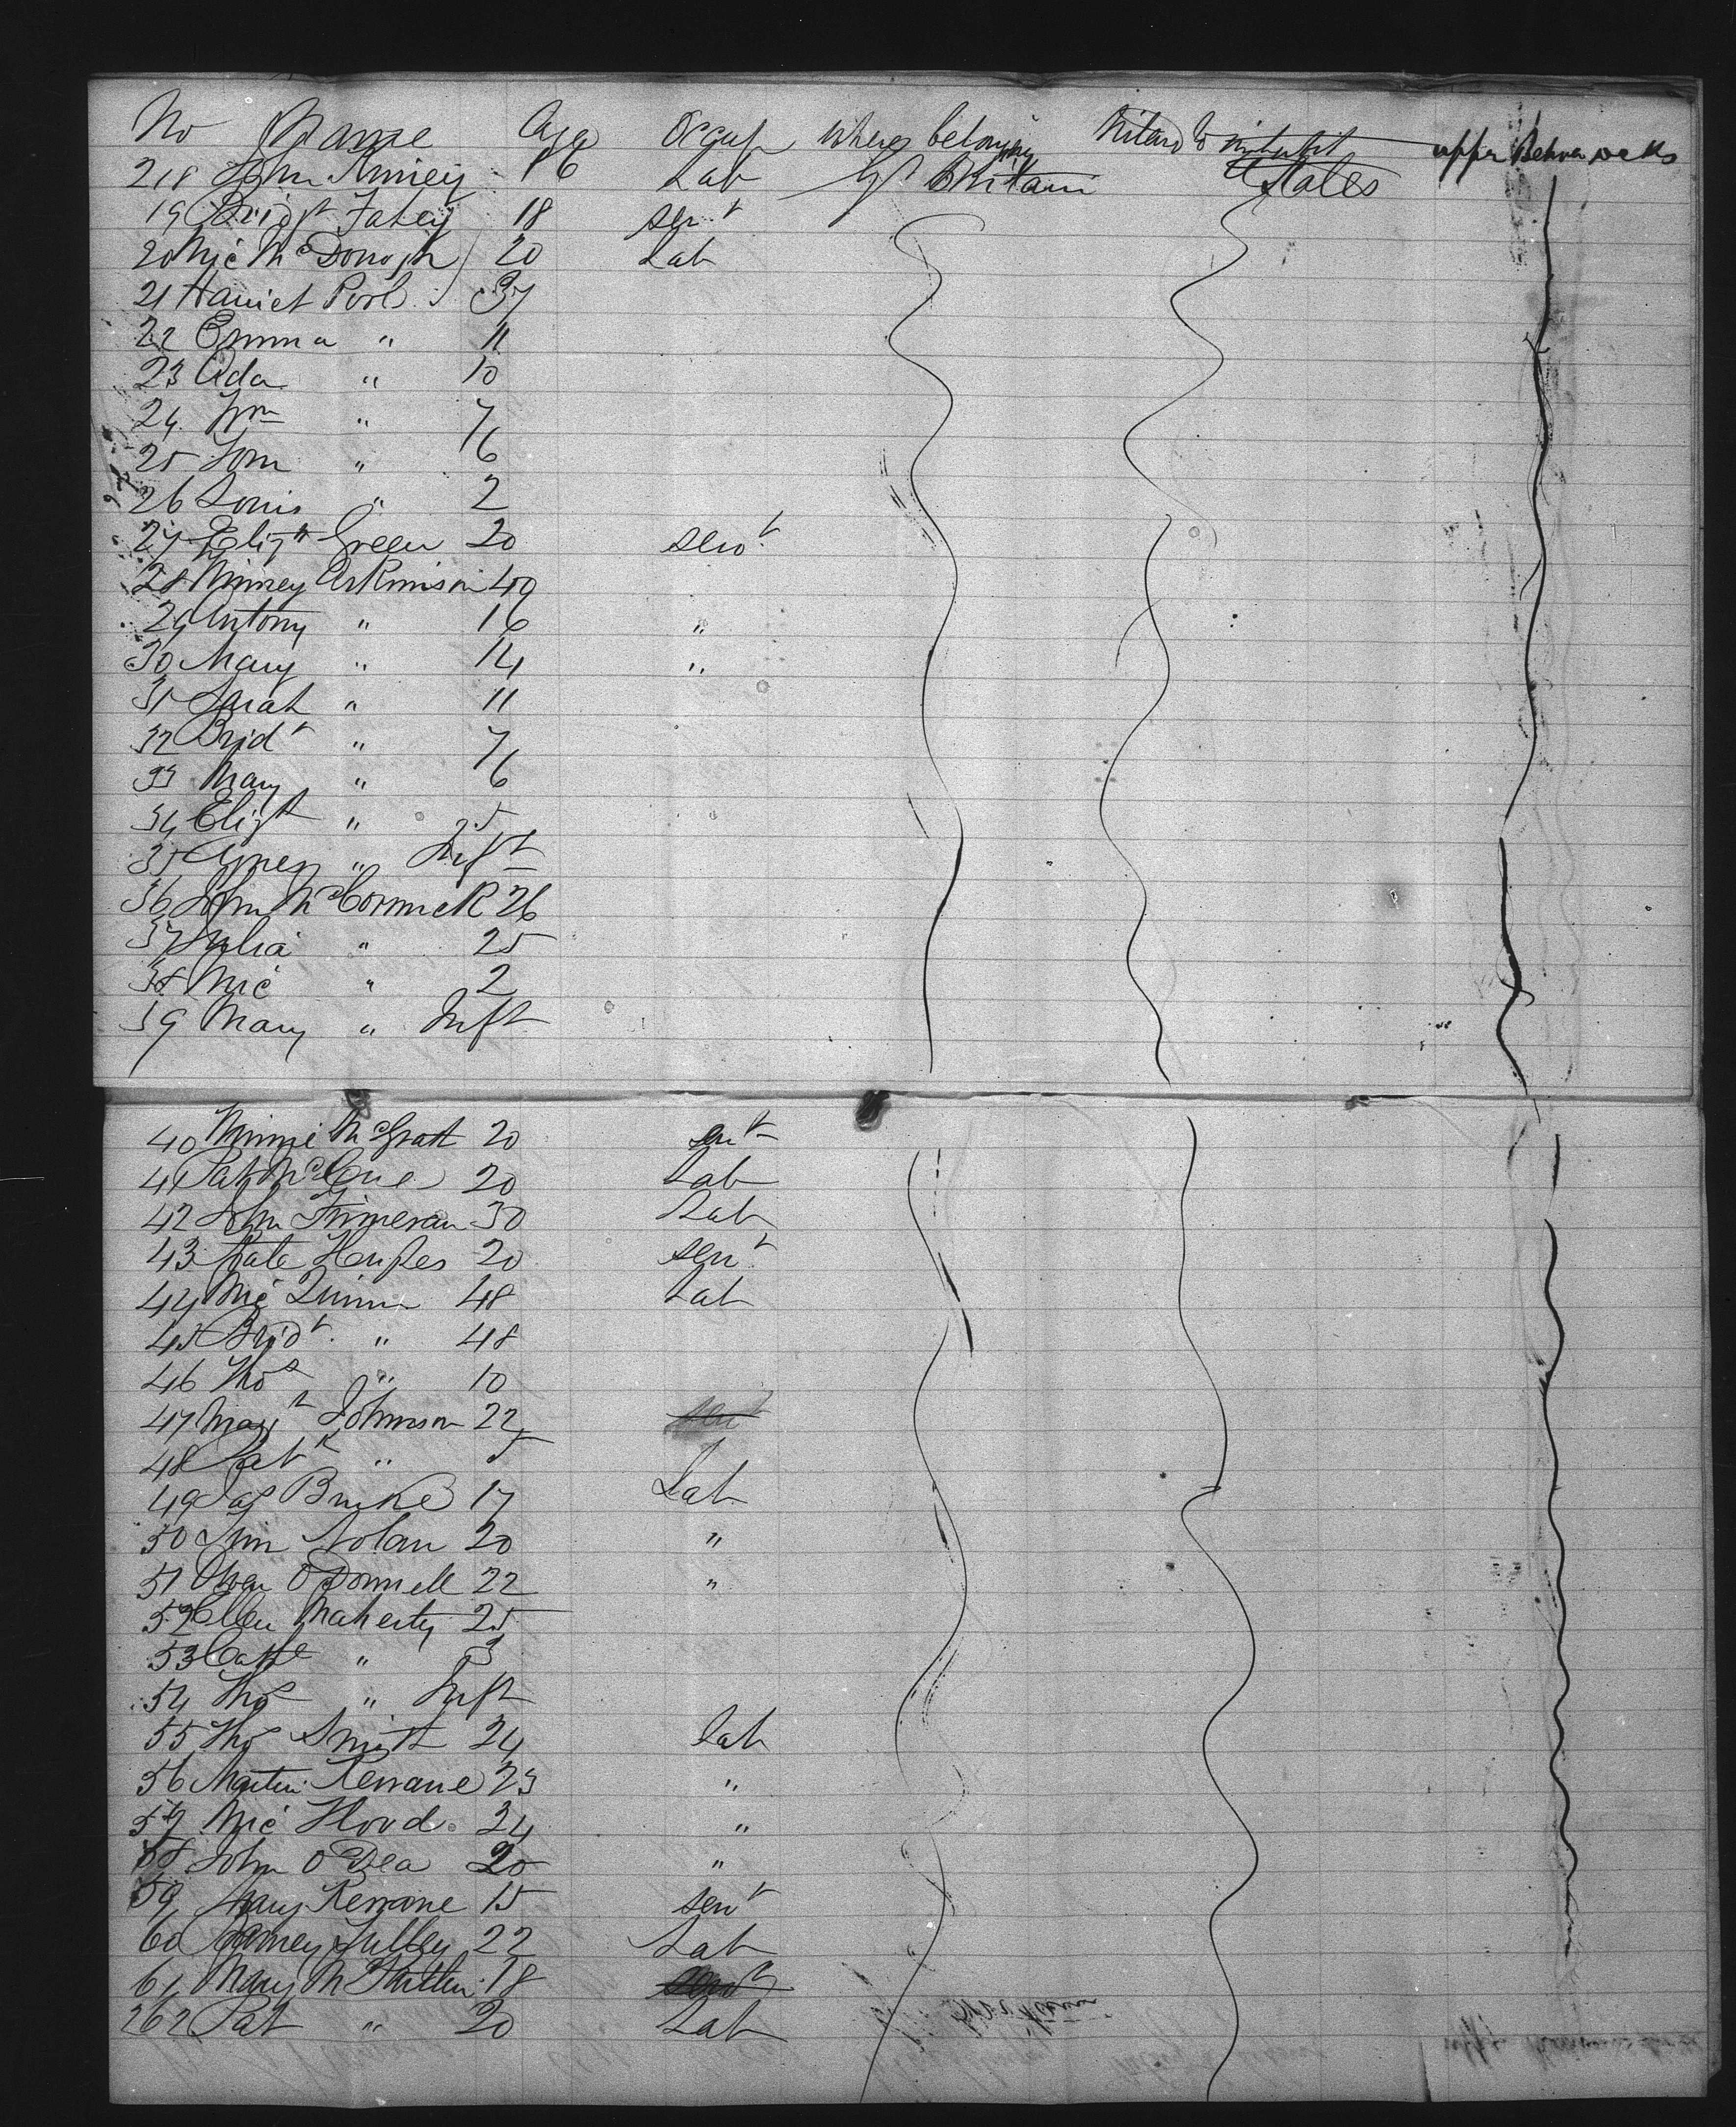 No Name Age Occup where belonging Intend to inhabit upper Between decks
218 John 16 Lab Gt Britain States
19 Bridgt Fahey 18 servt
20 Mic McDonogh 20 Lab
21 Harriet Pool 37
22 Emma " 11
23 Ada " 10
24 Wm " 7
25 Tom " 6
26 Louis " 2
27 Elizth Green 20 servt
28 Atkinson 40
29 Antony " 16 "
30 Mary " 14 "
31 Sarah " 11
32 Bridt " 7
33 Mary " 6
34 Elizth " 5
35 Agnes " Inft
36 John McCormick 26
37 Julia " 25
38 Mic " 2
39 Mary " Inft
40 Minnie McGrath 20 servt
41 Pat McCue 20 Lab
42 John 30 Lab
43 Kate Hughes 20 servt
44 Mic Quinn 48 Lab
45 Bridt " 48
46 Thos " 10
47 Johnson 22
48 Patk "
49 Jas Burke 17 Lab
50 Nolan 20 "
51 Owen O'Donnell 22 "
52 Ellen 25
53 Cathe " 3
54 Thos " Inft
55 Thos Smith 24 Lab
56 Martin Kerrane 23 "
57 Mic 24 "
58 John O'Dea 20 "
59 Mary Kerrane 15 servt
60 22 Lab
61 Mary 18 servt
262 Pat " 20 Lab